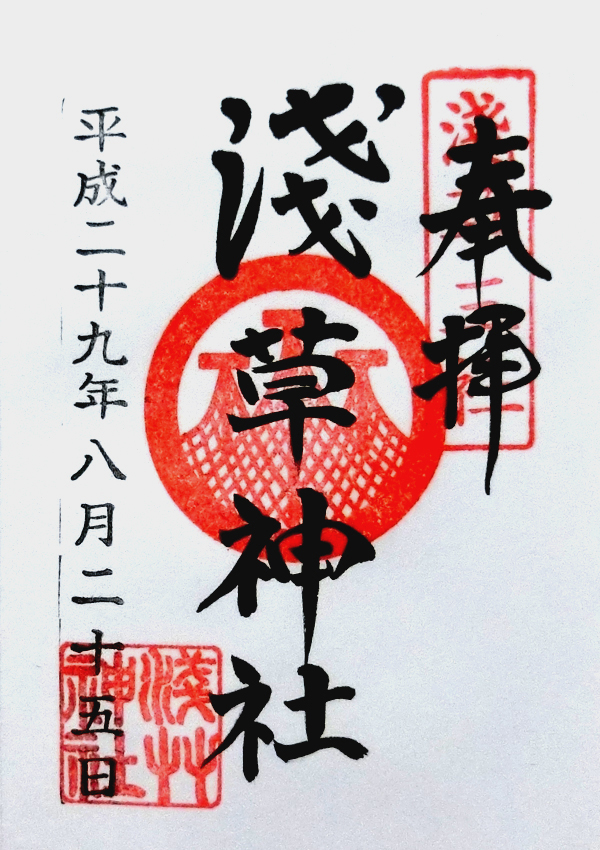 奉拝
淺草神社
平成二十九年八月二十五日
淺草
神社